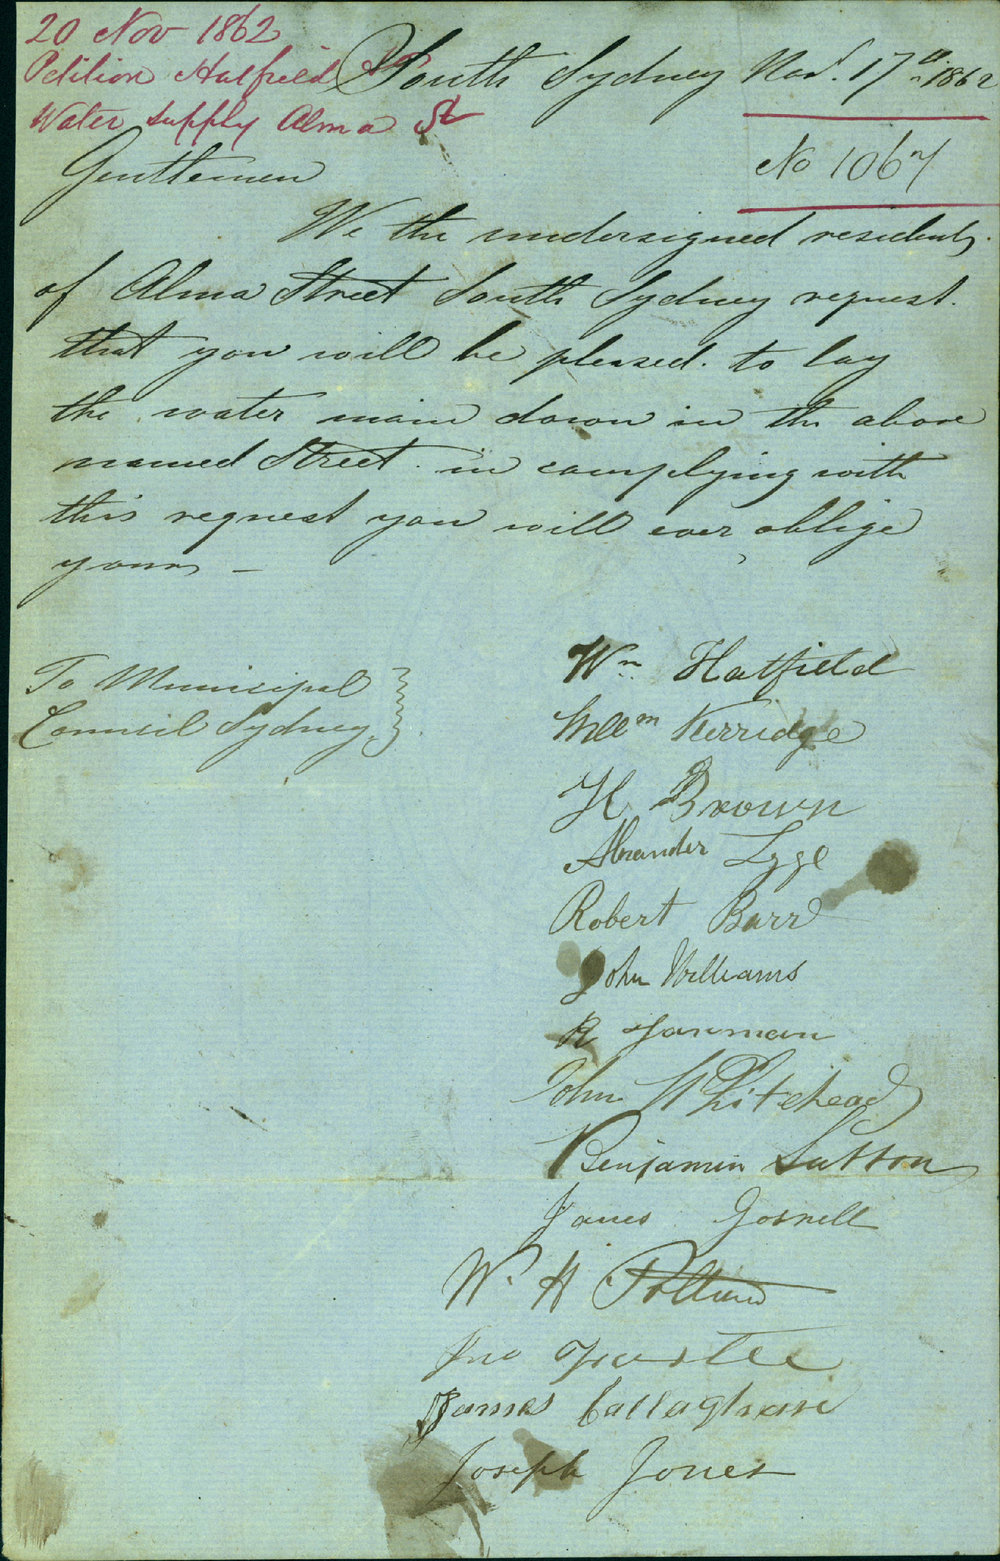 20 Nov 1862
Petition Hatfield
Water Supply Alma St
South Sydney Nov. 17th 1862
No 1067
Gentlemen
We the undersigned residents
of Alma Street South Sydney request
that you will be pleased to lay
the water main down in the above
named Street in complying with
this request you will ever oblige
yours
To Municipal
Council Sydney
Wm Hatfield
Willm Kerridge
H Brown
Alexander
Robert Barr
John Williams
R Jarman
John Whitehead
Benjamin Sutton
James Gosnell
W. H
Jno
James Callaghan
Joseph Jones